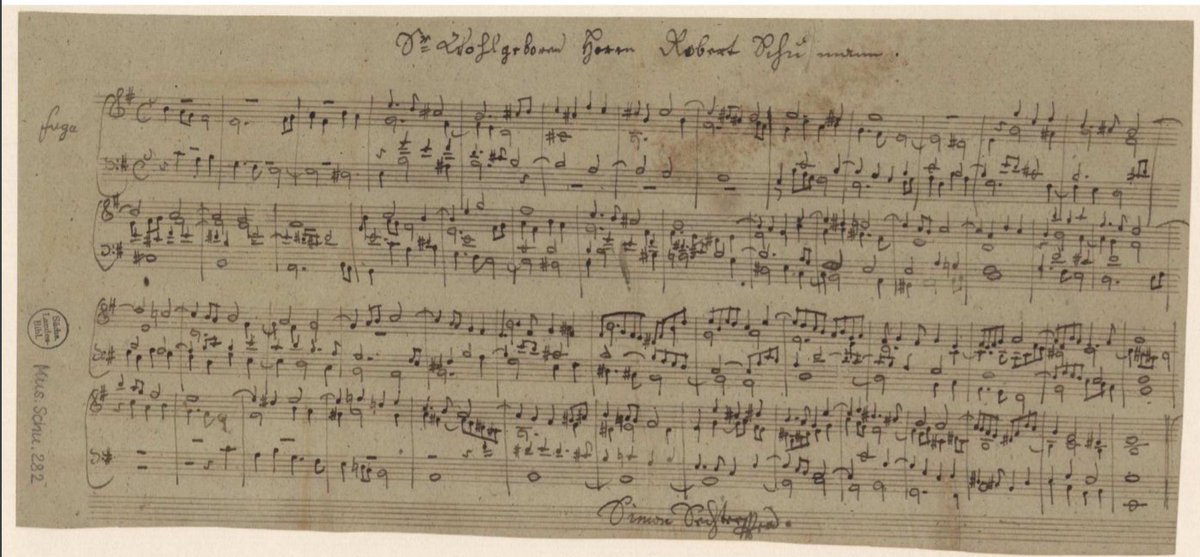 Sr Wohlgeboren Herrn Robert Schumann.
Fuga
Sächs.
Landes-
Bibl.
Mus. Schu. 282
Simon Sechter